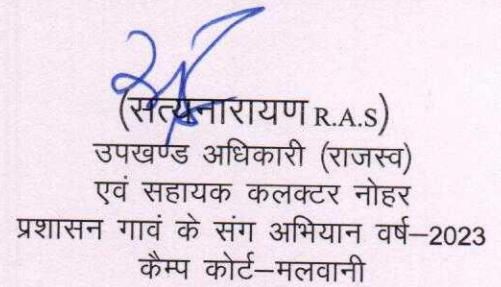 (सत्यनारायण R.A.S)
उपखण्ड अधिकारी (राजस्व)
एवं सहायक कलक्टर नोहर
प्रशासन गावं के संग अभियान वर्ष–2023
कैम्प कोर्ट–मलवानी